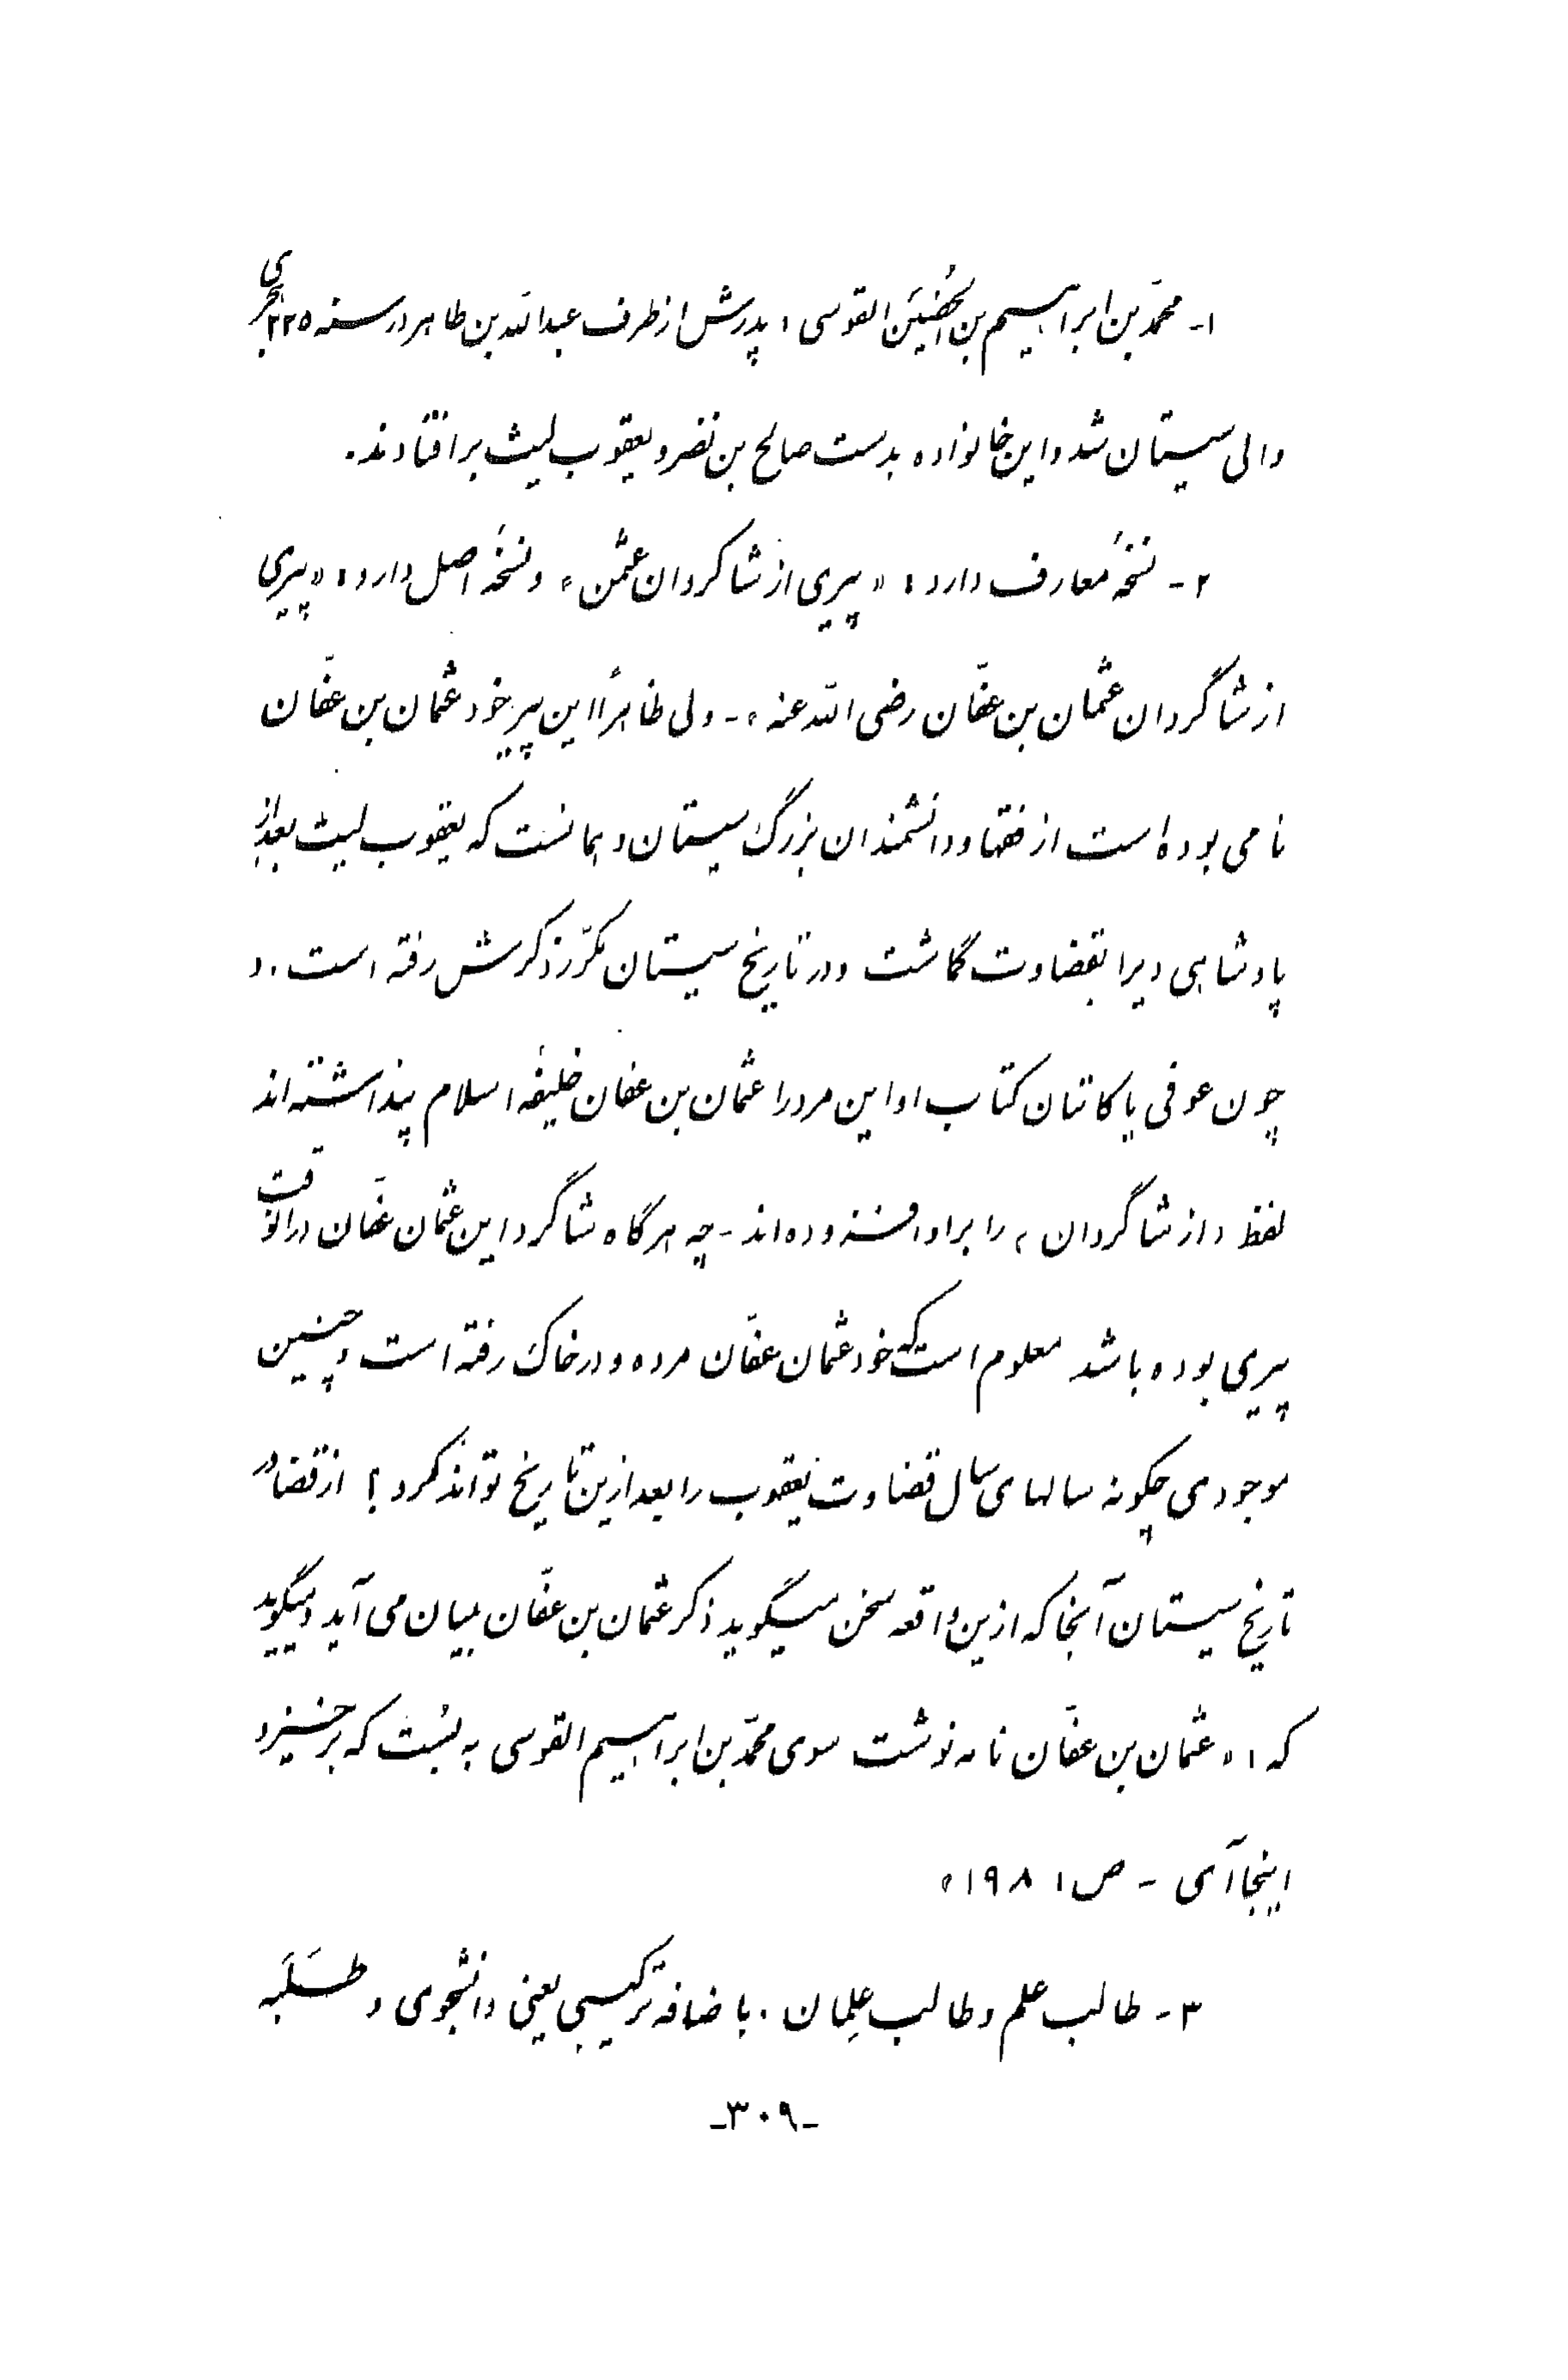 ۱- محمّد بن ابراهیم بن الحُضَین القوسی، پدرش از طرف عبدالله بن طاهر در سنه ۲۲۵ هجری
والی سیستان شد و این خانواده بدست صالح بن نصر و یعقوب لیث برافتادند.
۲- نسخهٔ معارف دارد: «پیری از شاکردان عثمن» و نسخهٔ اصل دارد: «پیری
از شاگردان عثمان بن عفّان رضی الله عنه» - ولی ظاهراً این پیر خود عثمان بن عفّان
نامی بوده است از فقها و دانشمندان بزرگ سیستان و همانست که یعقوب لیث بعد از
پادشاهی ویرا بقضاوت گماشت و در تاریخ سیستان مکرّر ذکرش رفته است. و
چون عوفی یا کاتبان کتاب او این مرد را عثمان بن عفان خلیفهٔ اسلام پنداشته‌اند
لفظ «از شاگردان» را بر او افزوده‌اند - چه هرگاه شاگرد این عثمان عفّان در آنوقت
پیری بوده باشد معلوم است که خود عثمان عفّان مرده و در خاک رفته است و چنین
موجودی چگونه سالهای سال قضاوت یعقوب را بعد ازین تاریخ تواند کرد؟ از قضا در
تاریخ سیستان آنجا که ازین واقعه سخن میگوید ذکر عثمان بن عفّان بمیان می آید و میگوید
که: «عثمان بن عفّان نامه نوشت سوی محمّد بن ابراهیم القوسی به بُست که برخیز و
اینجا آی - ص: ۱۹۸»
۳- طالب علم و طالب عِلمان. باضافهٔ ترکیبی یعنی دانشجوی و طَلَبه
-۳۰۹-